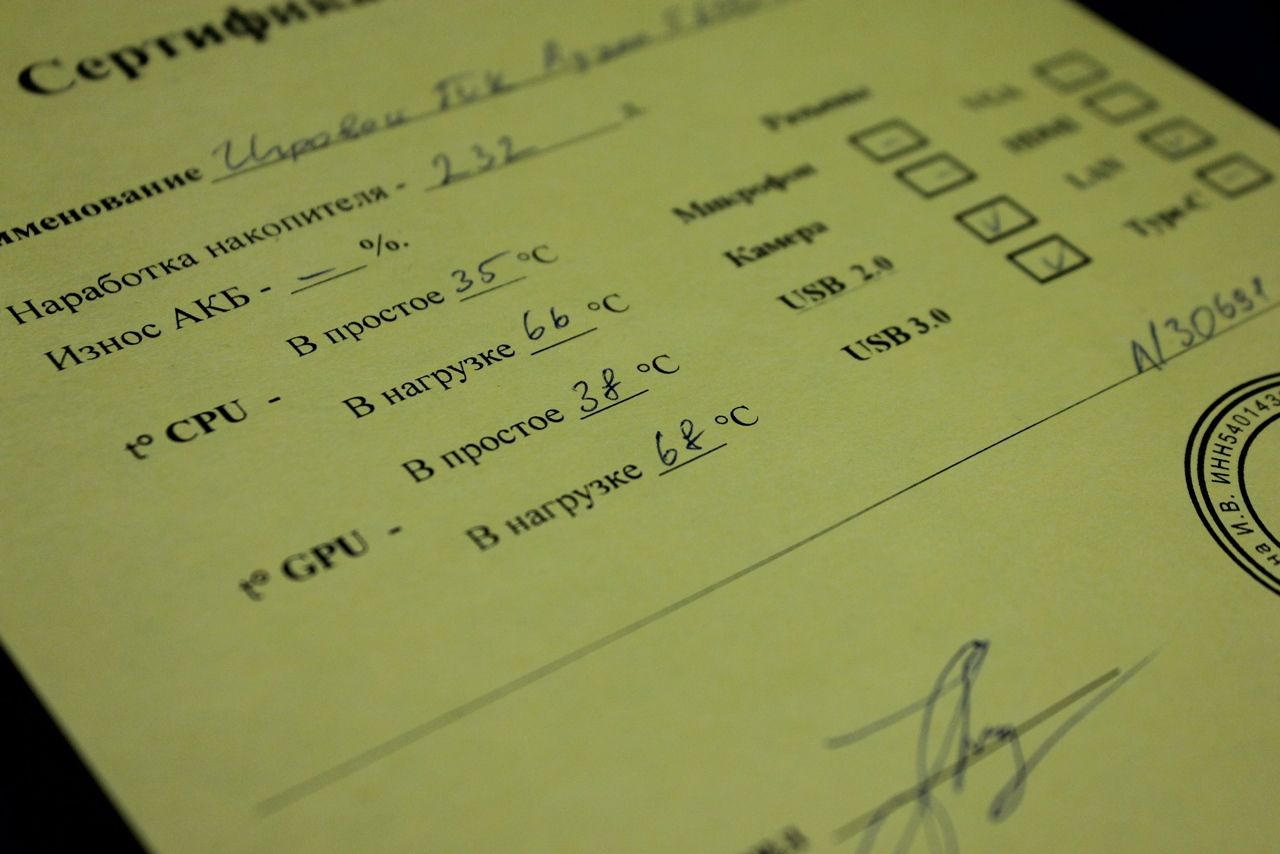 Сертифика
именование Игровой ПК
Наработка накопителя - 232 ч
Износ АКБ - — %.
t° CPU - В простое 35 °C
В нагрузке 66 °C
t° GPU - В простое 38 °C
В нагрузке 68 °C
Разъемы
Микрофон
Камера
USB 2.0
USB 3.0
VGA
HDMI
LAN
Type-C
А/30691
на И.В. ИНН540143